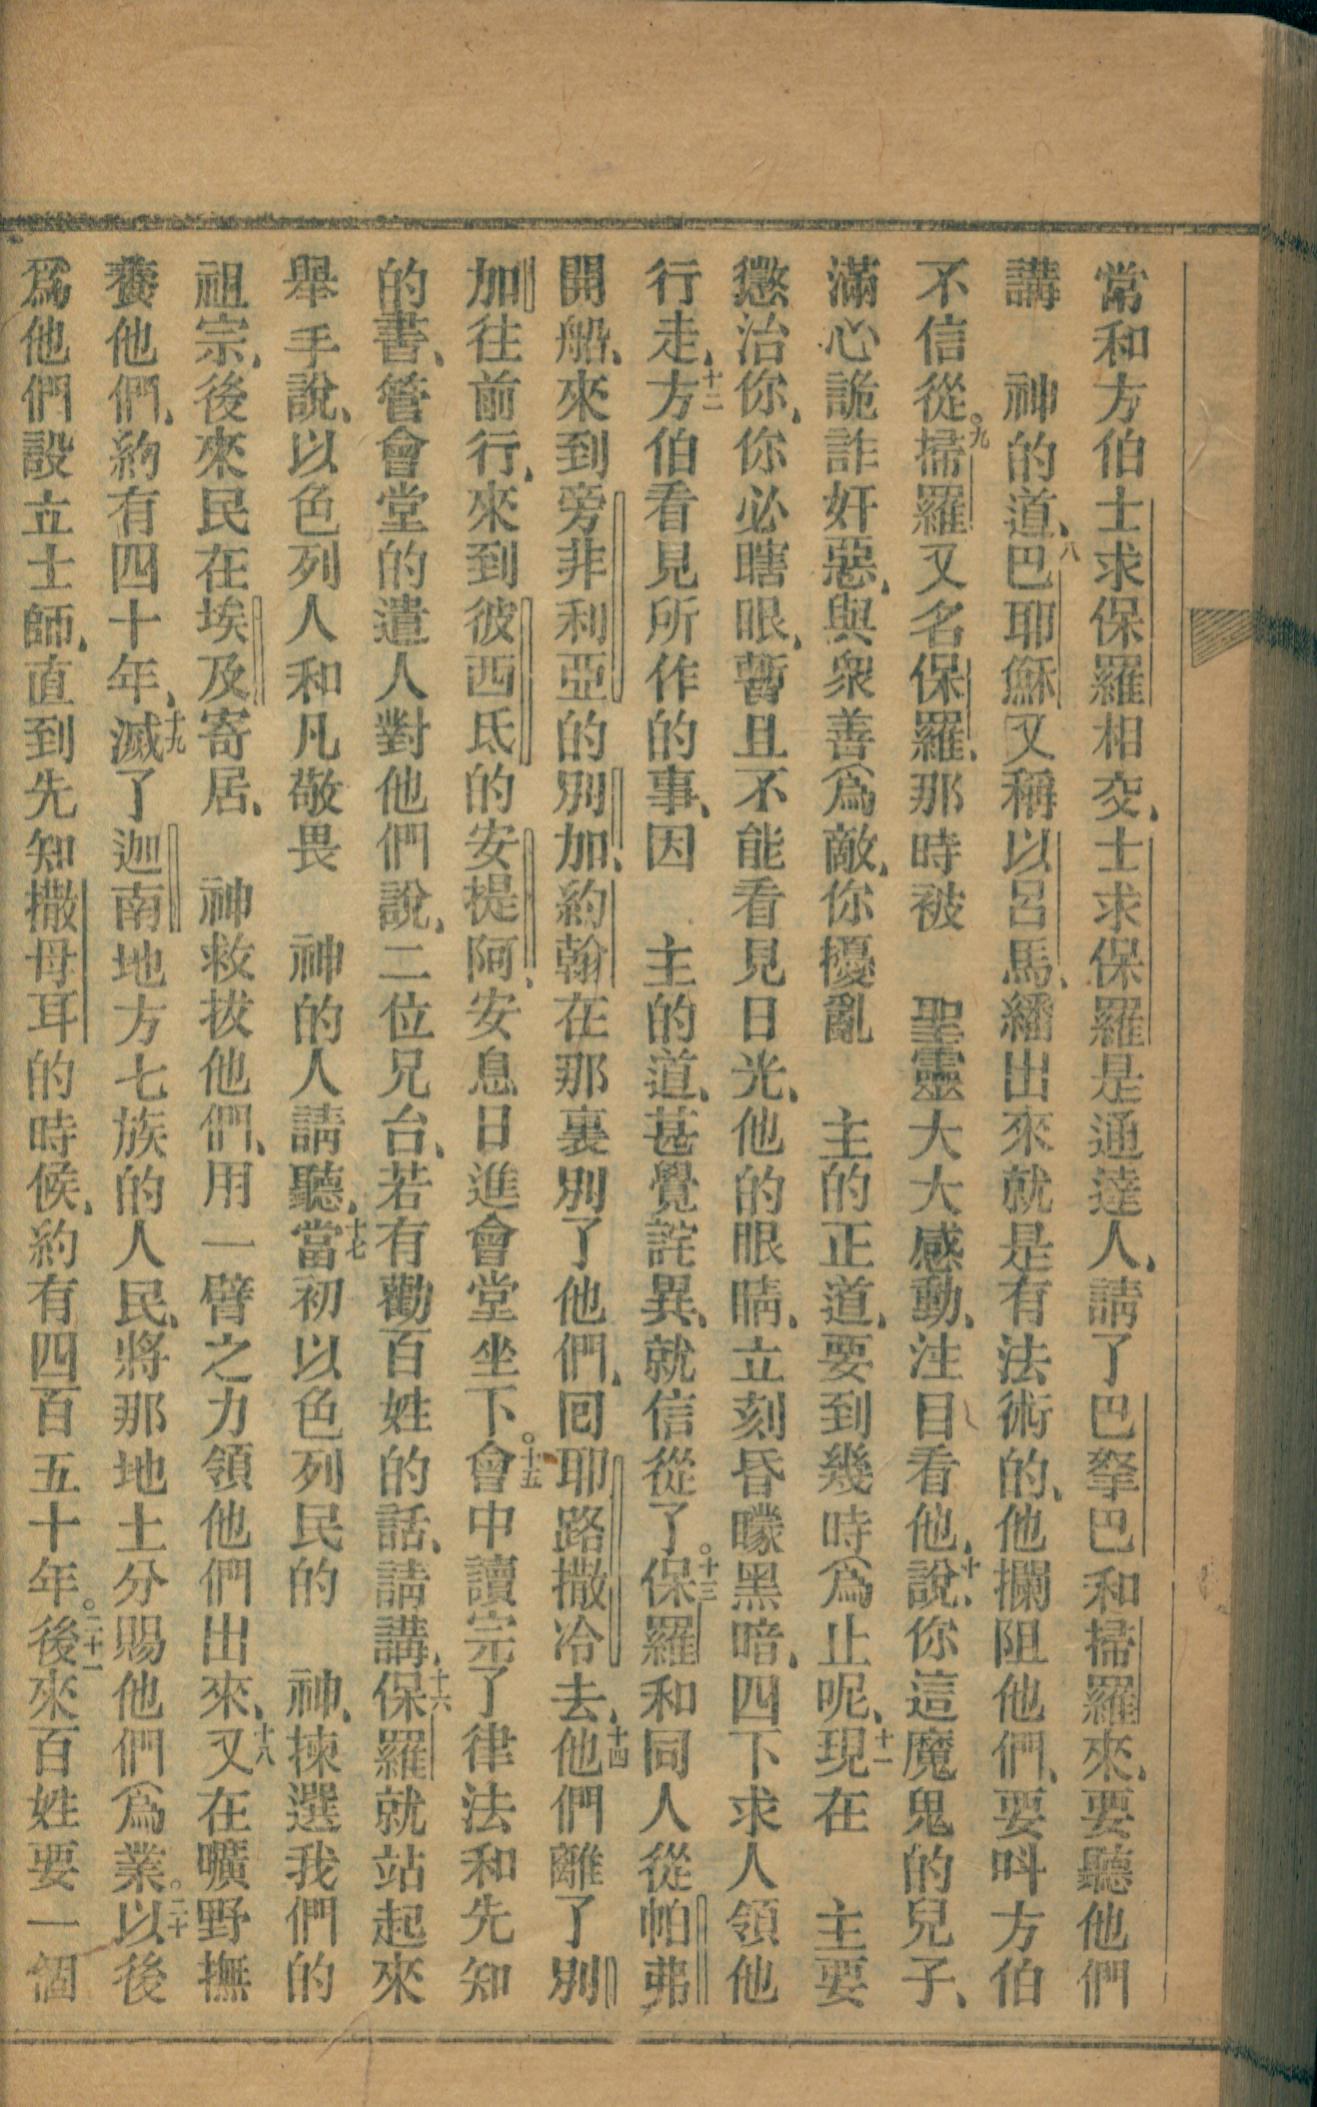 常和方伯士求保羅相交、士求保羅是通達人、請了巴拏巴和掃羅來、要聽他們
講　神的道、八巴耶穌又稱以呂馬、繙出來就是有法術的、他攔阻他們、要呌方伯
不信從。九掃羅又名保羅、那時被　聖靈大大感動、注目看他、十說、你這魔鬼的兒子、
滿心詭詐奸惡、與衆善爲敵、你擾亂　主的正道、要到幾時爲止呢、十一現在　主要
懲治你、你必瞎眼、暫且不能看見日光、他的眼睛、立刻昏矇黑暗、四下求人領他
行走、十二方伯看見所作的事、因　主的道、甚覺詫異、就信從了。十三保羅和同人從帕弗
開船、來到旁非利亞的別加、約翰在那裏別了他們、囘耶路撒冷去、十四他們離了別
加往前行、來到彼西氐的安提阿、安息日進會堂坐下。十五會中讀完了律法和先知
的書、管會堂的遣人對他們說、二位兄台、若有勸百姓的話、請講、十六保羅就站起來
舉手說、以色列人和凡敬畏　神的人請聽、十七當初以色列民的　神、揀選我們的
祖宗、後來民在埃及寄居、　神救拔他們、用一臂之力領他們出來、十八又在曠野撫
養他們、約有四十年、十九滅了迦南地方七族的人民、將那地土分賜他們爲業。二十以後
爲他們設立士師、直到先知撒母耳的時候、約有四百五十年。二十一後來百姓要一個